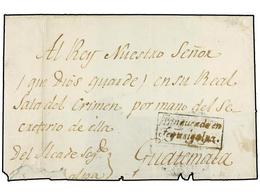 Al Rey Nuestro Señor
(que Dios guarde) en su Real
Sala del Crimen por mano del Se
cretario de ella
Franqueado en
Tegucigalpa.
Del Alcade Seg.
Guatemala